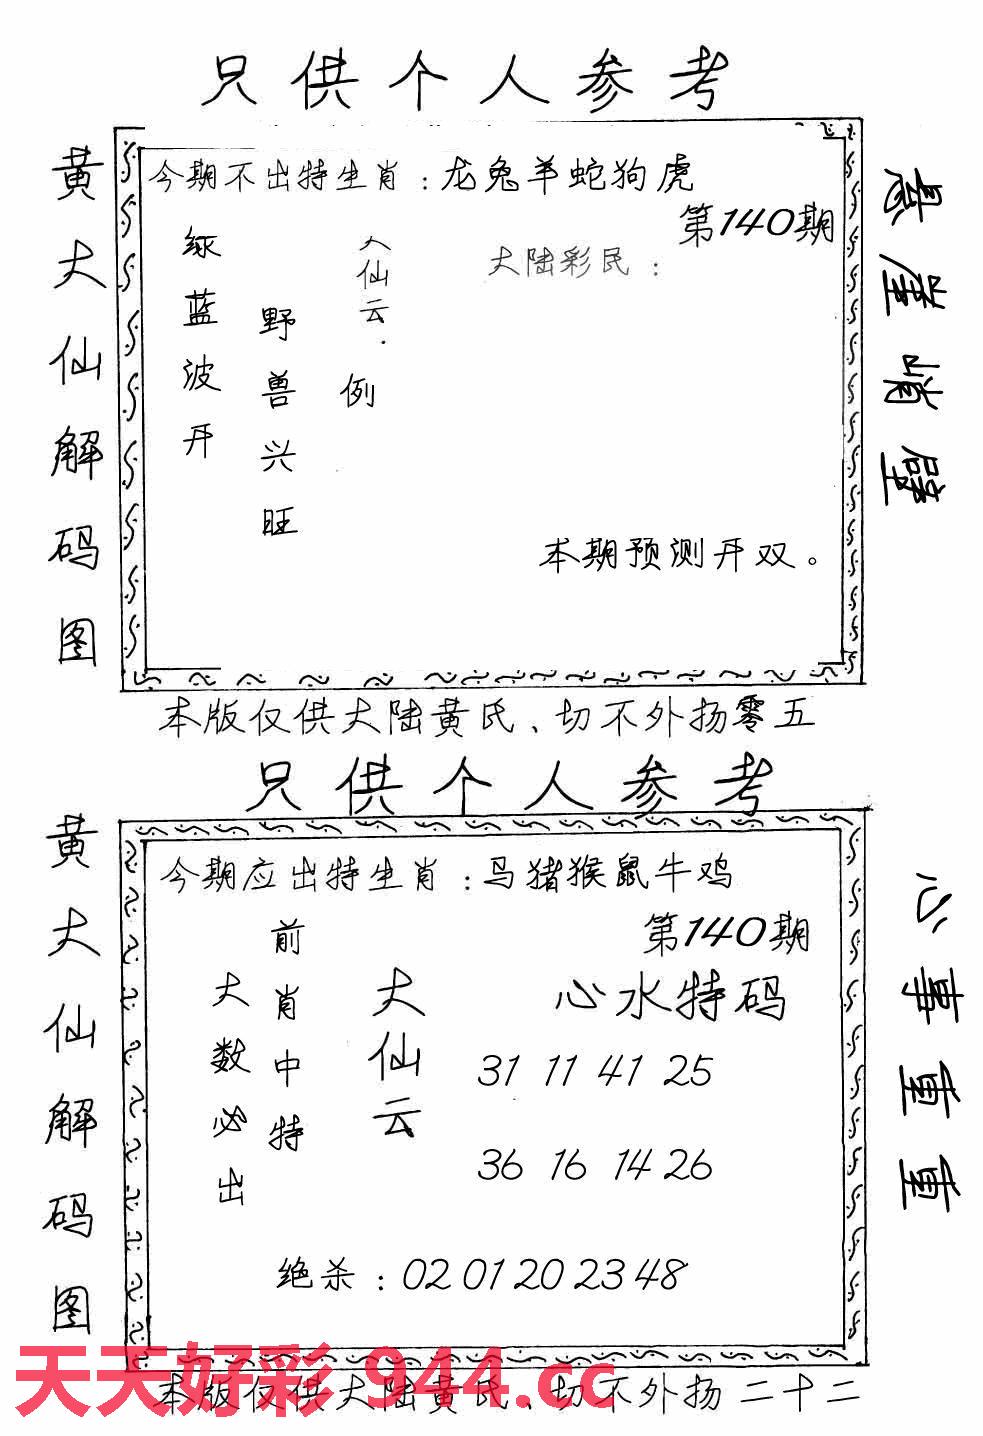 只供个人参考
黄大仙解码图
今期不出特生肖：龙兔羊蛇狗虎
第140期
大陆彩民：
大仙云.
例
野兽兴旺
绿蓝波开
本期预测开双。
悬崖峭壁
本版仅供大陆黄氏、切不外扬零五
只供个人参考
黄大仙解码图
今期应出特生肖：马猪猴鼠牛鸡
第140期
心水特码
大仙云
前肖中特
大数必出
31 11 41 25
36 16 14 26
绝杀：02 01 20 23 48
心事重重
本版仅供大陆黄氏、切不外扬二十二
天天好彩 944.cc